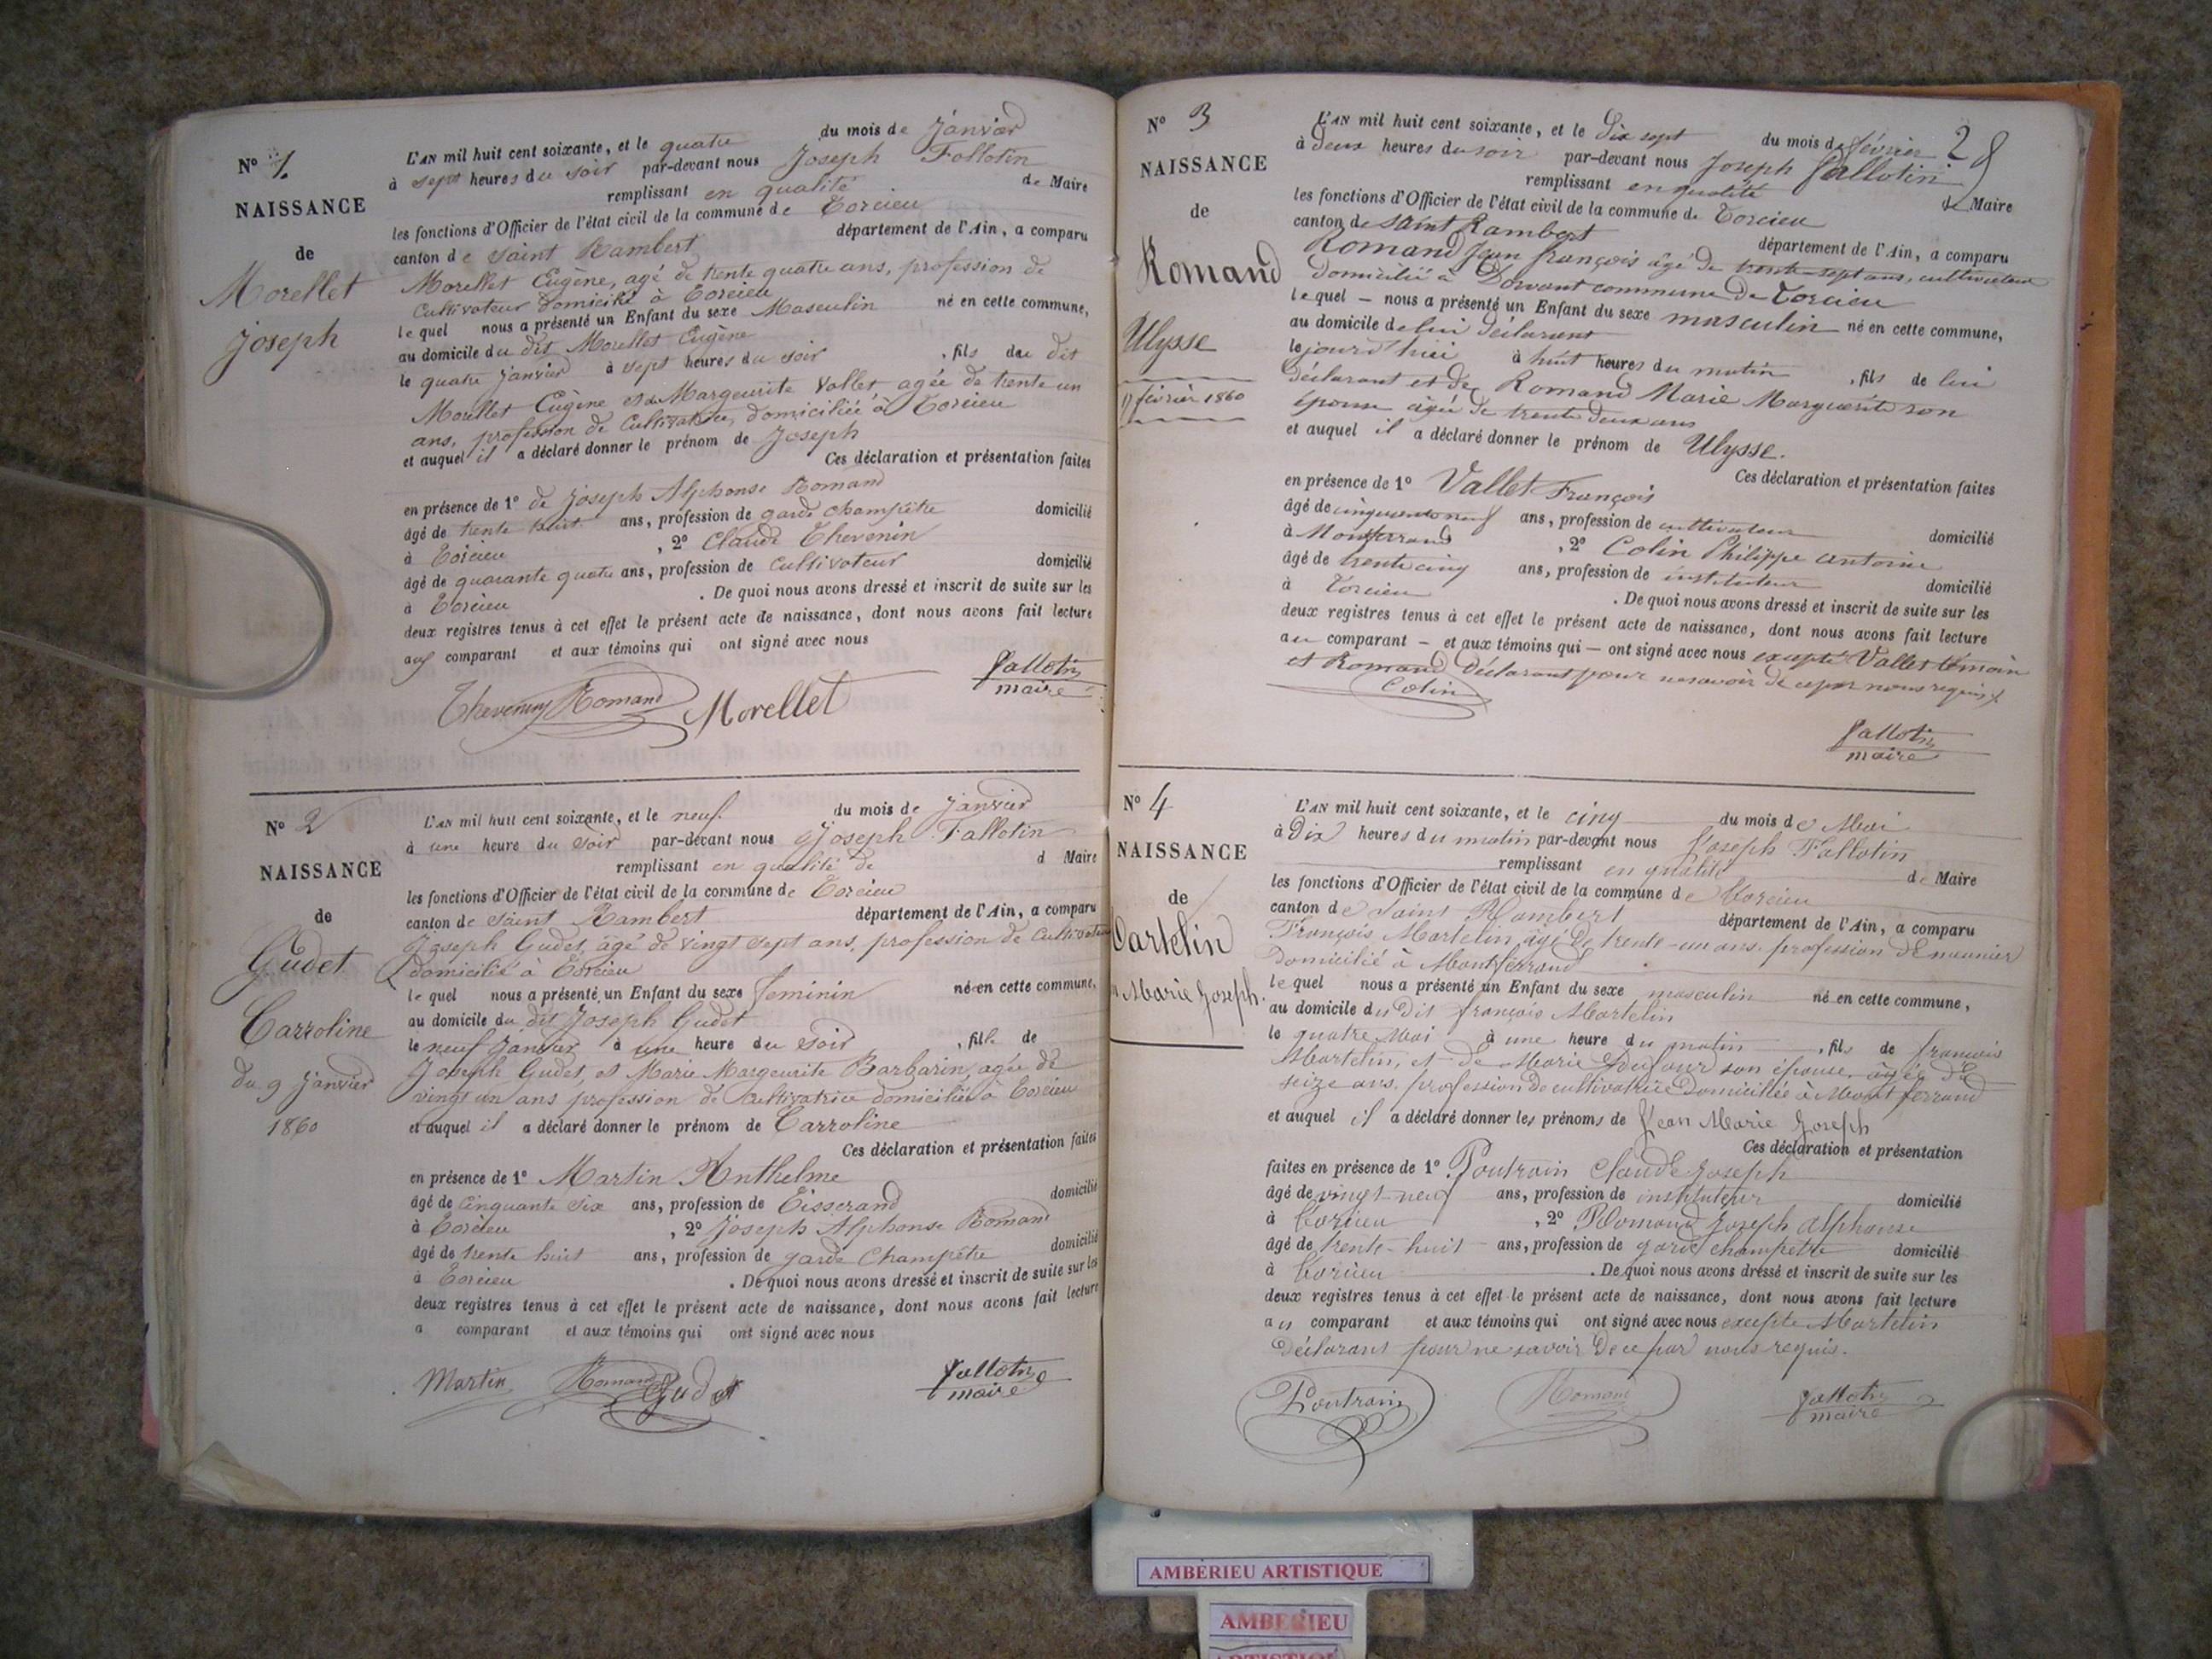 N° 1.
NAISSANCE
de
Morellet
Joseph
L'AN mil huit cent soixante, et le quatre du mois de Janvier
à sept heures du soir par-devant nous Joseph Fallotin
remplissant en qualité de Maire
les fonctions d'Officier de l'état civil de la commune de Torcieu
canton de Saint Rambert département de l'Ain, a comparu
Morellet Eugène, agé de trente quatre ans, profession de
Cultivateur domicilié à Torcieu
lequel nous a présenté un Enfant du sexe Masculin né en cette commune,
au domicile du dit Morellet Eugène
le quatre Janvier à sept heures du soir, fils du dit
Morellet Eugène et de Margeurite Vallet, agée de trente un
ans, profession de Cultivatrice, domiciliée à Torcieu
et auquel il a déclaré donner le prénom de Joseph
Ces déclaration et présentation faites
en présence de 1° de Joseph Alphonse Romand
âgé de trente huit ans, profession de garde champêtre domicilié
à Torcieu, 2° Claude Thevenin
âgé de quarante quatre ans, profession de Cultivateur domicilié
à Torcieu. De quoi nous avons dressé et inscrit de suite sur les
deux registres tenus à cet effet le présent acte de naissance, dont nous avons fait lecture
aux comparant et aux témoins qui ont signé avec nous
Thevenin Romand Morellet Fallotin
maire
N° 2
NAISSANCE
de
Gudet
Carroline
du 9 Janvier
1860
L'AN mil huit cent soixante, et le neuf du mois de Janvier
à une heure du soir par-devant nous Joseph Fallotin
remplissant en qualité de d Maire
les fonctions d'Officier de l'état civil de la commune de Torcieu
canton de Saint Rambert département de l'Ain, a comparu
Joseph Gudet, agé de vingt sept ans, profession de Cultivateur
domicilié à Torcieu
lequel nous a présenté un Enfant du sexe feminin né en cette commune,
au domicile du dit Joseph Gudet
le neuf Janvier à une heure du soir, fille de
Joseph Gudet, et Marie Margeurite Barbarin, agée de
vingt un ans profession de Cultivatrice domiciliée à Torcieu
et auquel il a déclaré donner le prénom de Carroline
Ces déclaration et présentation faites
en présence de 1° Martin Anthelme
âgé de Cinquante six ans, profession de Tisserand domicilié
à Torcieu, 2° Joseph Alphonse Romand
âgé de trente huit ans, profession de garde Champêtre domicilié
à Torcieu. De quoi nous avons dressé et inscrit de suite sur les
deux registres tenus à cet effet le présent acte de naissance, dont nous avons fait lecture
a comparant et aux témoins qui ont signé avec nous
Martin Romand Gudet Fallotin
maire
28
N° 3
NAISSANCE
de
Romand
Ulysse
17 février 1860
L'AN mil huit cent soixante, et le Dix sept du mois de février
à Deux heures du soir par-devant nous Joseph Fallotin
remplissant en qualité de Maire
les fonctions d'Officier de l'état civil de la commune de Torcieu
canton de Saint Rambert département de l'Ain, a comparu
Romand Jean françois âgé de trente sept ans, cultivateur
domicilié à Dorvant commune de Torcieu
lequel – nous a présenté un Enfant du sexe masculin né en cette commune,
au domicile de lui déclarant
le jourd'hui à huit heures du matin, fils de lui
déclarant et de Romand Marie Marguerite son
épouse âgée de trente deux ans
et auquel il a déclaré donner le prénom de Ulysse.
Ces déclaration et présentation faites
en présence de 1° Vallet François
âgé de cinquante neuf ans, profession de cultivateur domicilié
à Montferrand, 2° Colin Philippe antoine
âgé de trente cinq ans, profession de instituteur domicilié
à Torcieu. De quoi nous avons dressé et inscrit de suite sur les
deux registres tenus à cet effet le présent acte de naissance, dont nous avons fait lecture
au comparant – et aux témoins qui – ont signé avec nous excepté Vallet témoin
et Romand déclarant pour ne savoir de ce par nous requis
Colin
Fallotin
maire
N° 4
NAISSANCE
de
Martelin
Marie Joseph.
L'AN mil huit cent soixante, et le cinq du mois de Mai
à Dix heures du matin par-devant nous Joseph Fallotin
remplissant en qualité de Maire
les fonctions d'Officier de l'état civil de la commune de Torcieu
canton de Saint Rambert département de l'Ain, a comparu
François Martelin, âgé de trente-un ans, profession de meunier
domicilié à Montferrand
lequel nous a présenté un Enfant du sexe masculin né en cette commune,
au domicile du dit françois Martelin
le quatre Mai à une heure du matin, fils de françois
Martelin, et de Marie Dufour son épouse, âgée de
seize ans, profession de cultivatrice domiciliée à Montferrand
et auquel il a déclaré donner les prénoms de Jean Marie Joseph
Ces déclaration et présentation
faites en présence de 1° Poutrain Claude Joseph
âgé de vingt-neuf ans, profession de instituteur domicilié
à Torcieu, 2° Romand Joseph Alphonse
âgé de trente-huit ans, profession de garde champêtre domicilié
à Torcieu. De quoi nous avons dressé et inscrit de suite sur les
deux registres tenus à cet effet le présent acte de naissance, dont nous avons fait lecture
au comparant et aux témoins qui ont signé avec nous excepté Martelin
déclarant pour ne savoir de ce par nous requis.
Poutrain Romand Fallotin
maire
AMBÉRIEU ARTISTIQUE
AMBERIEU
ARTISTIQUE